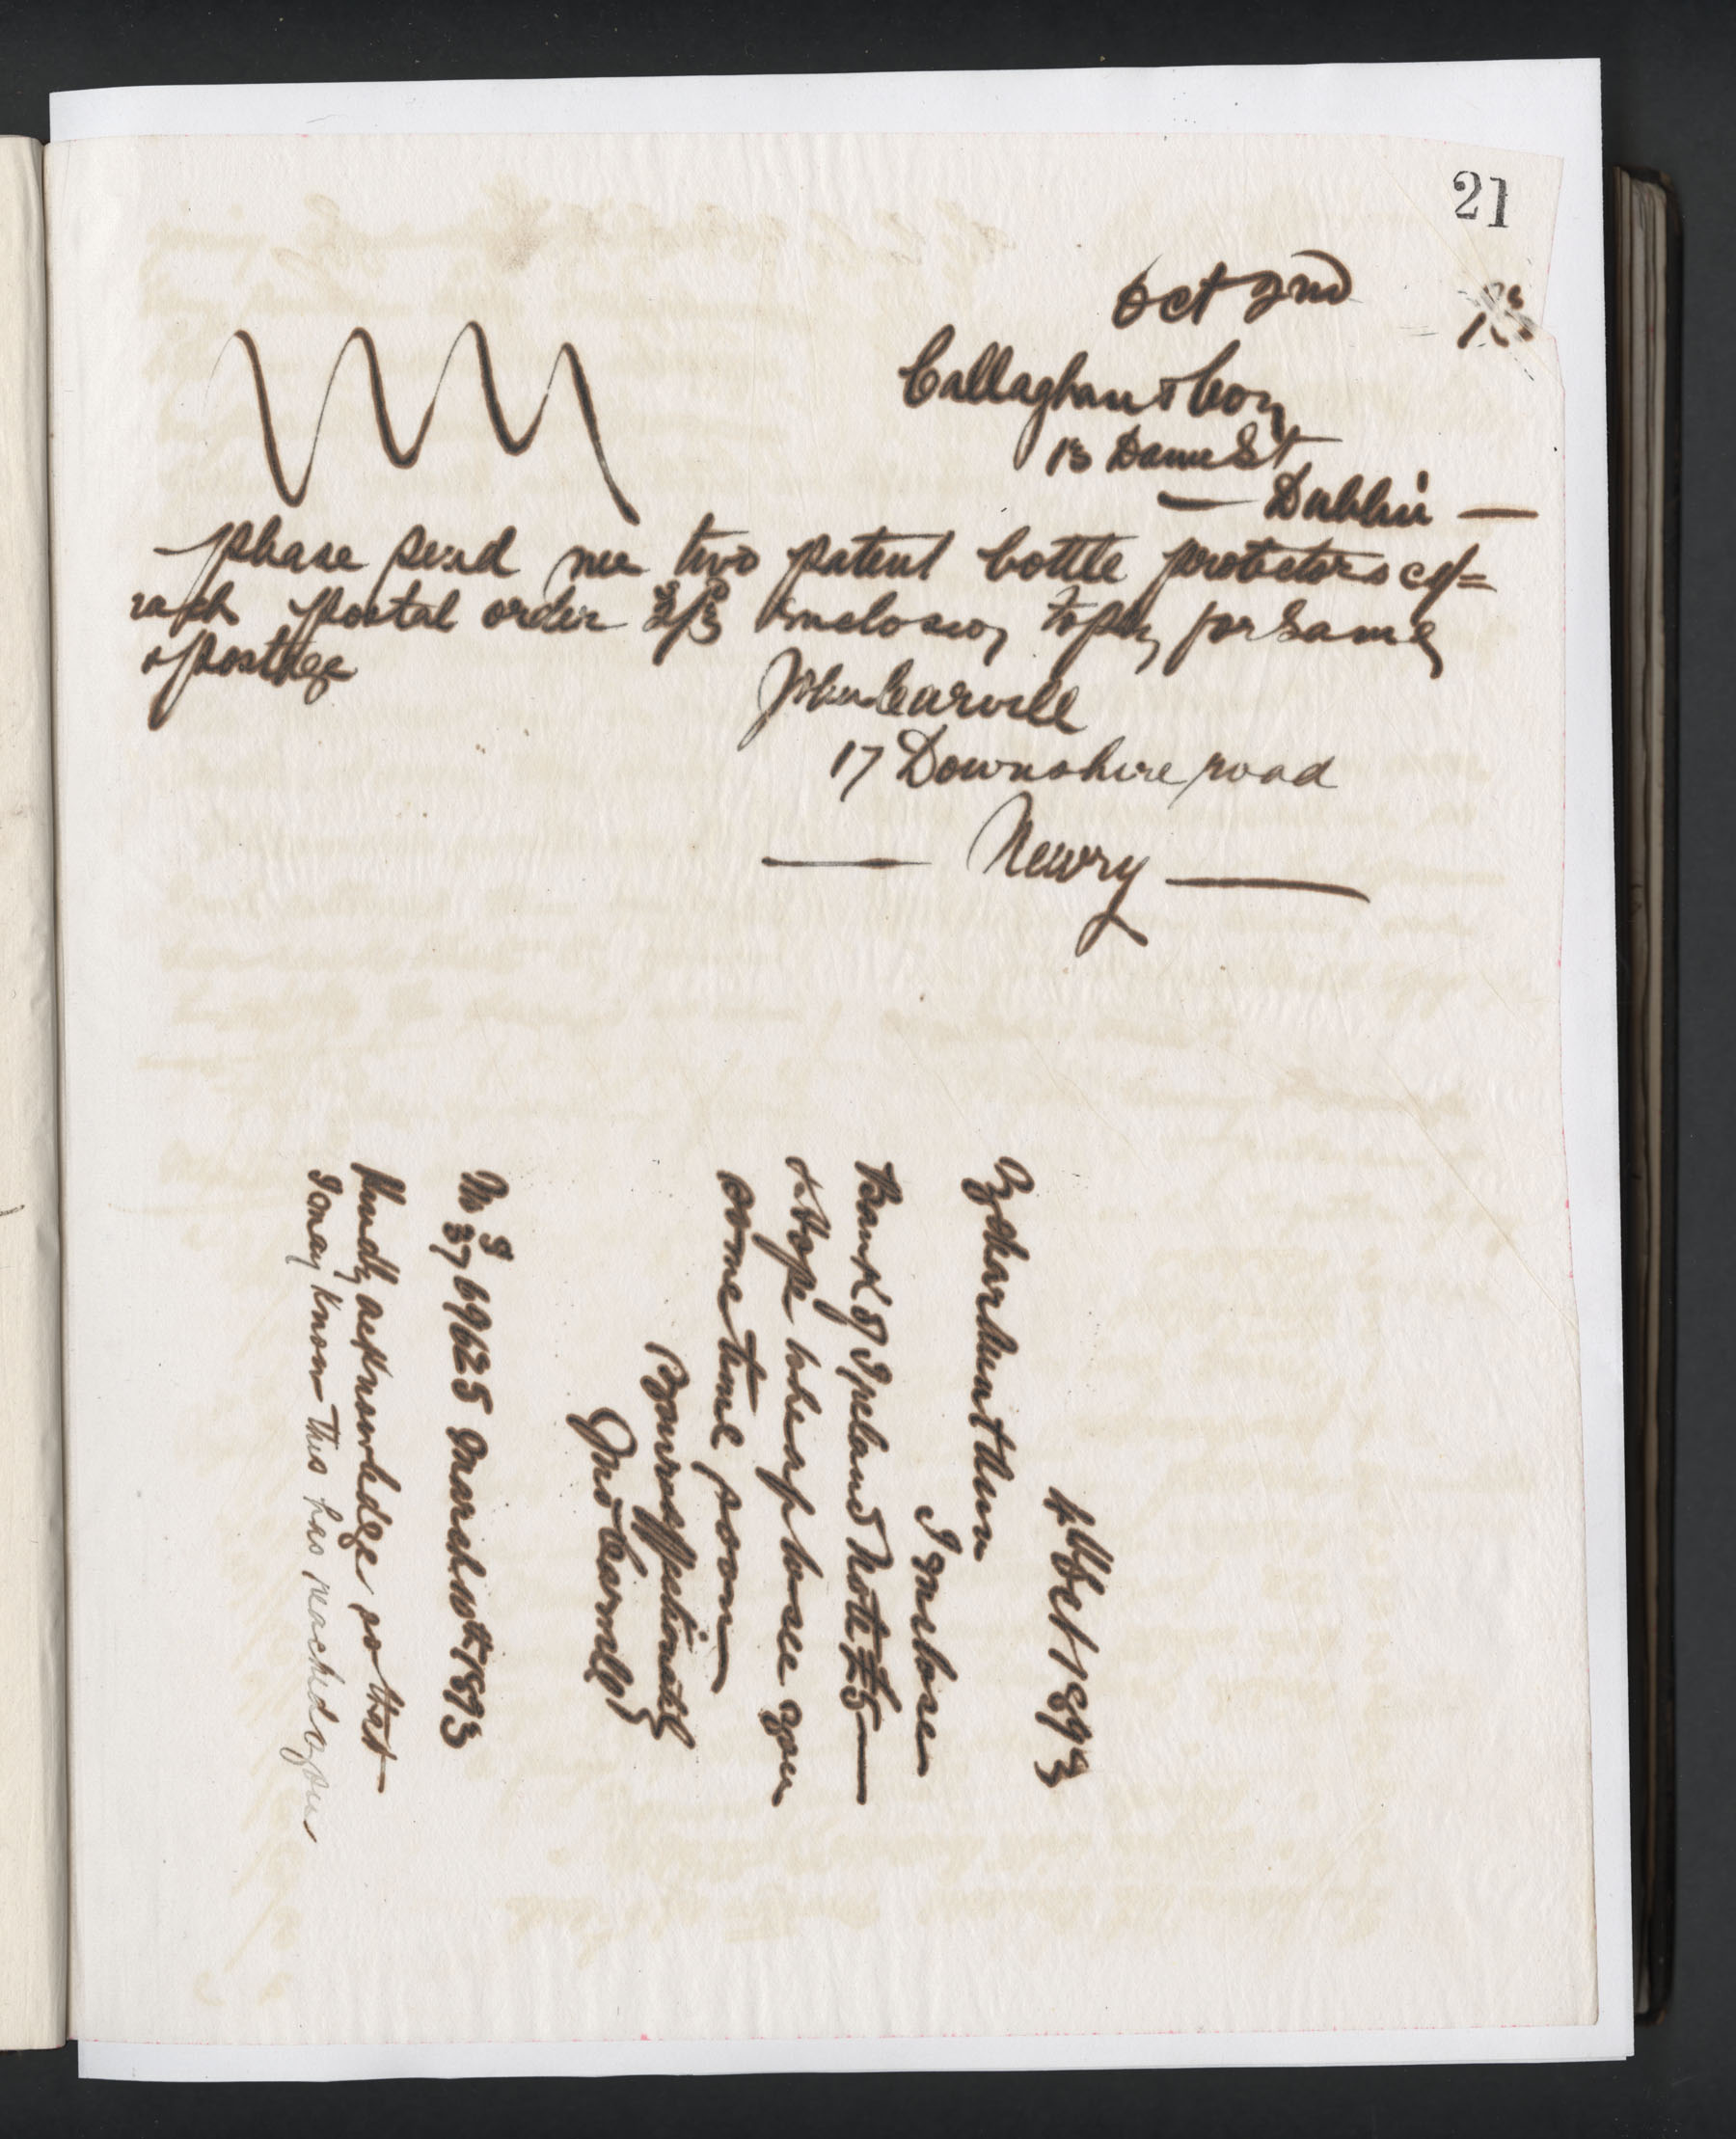 21
Oct 2nd
Callaghan & Coy
13 Dame St
— Dublin —
please send me two patent bottle protectors @
each postal order 2/3 Inclosing to pay for Same
& postage
John Carvill
17 Downshire road
— Newry —
4th Oct 1893
My dear Aunt Ann
I enclose
Bank of Ireland Note £5 —
& Hope to see you
some time soon
Yours affectionately
Jno Carvill
No 37 69625 March 10th 1893
Kindly acknowledge so that
I may Know This has reached you